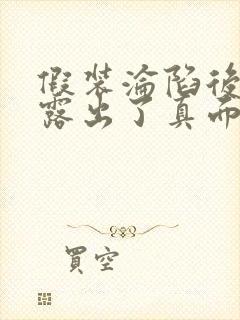 假装淪陷後
露出了真面
買空